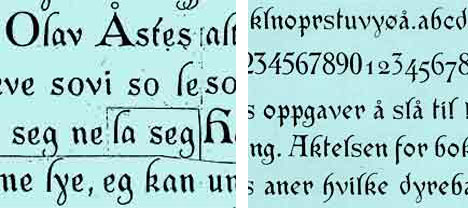 Olav Åstes alt
ve sovi so le so
seg ne la seg
me lye, eg kan un
klnoprstuvyøå.abcd
234567890 12345678
s oppgaver å slå til
ng. Aktelsen for bok
s aner hvilke dyreba